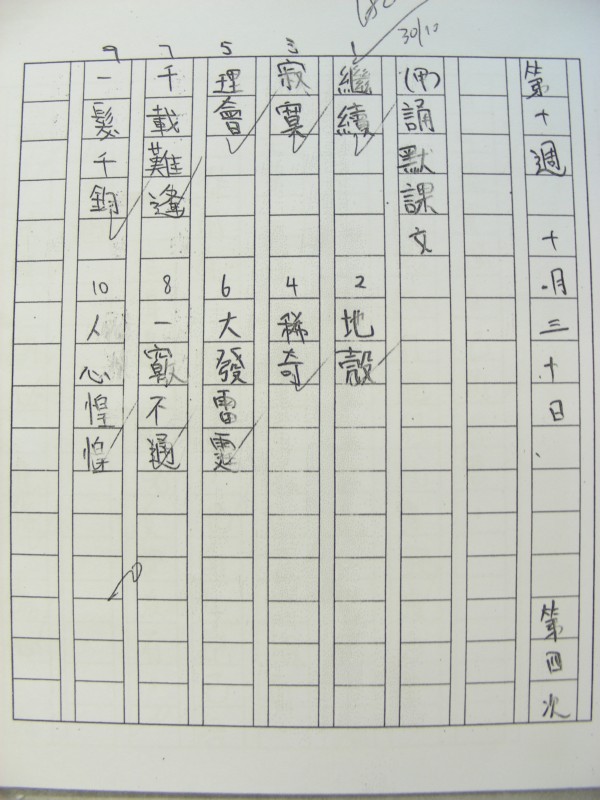 30/10
第十週 十月三十日 第四次
(甲)誦默課文
1 繼續
2 地殼
3 寂寞
4 稀奇
5 理會
6 大發雷霆
7 千載難逢
8 一竅不通
9 一髮千鈞
10 人心惶惶